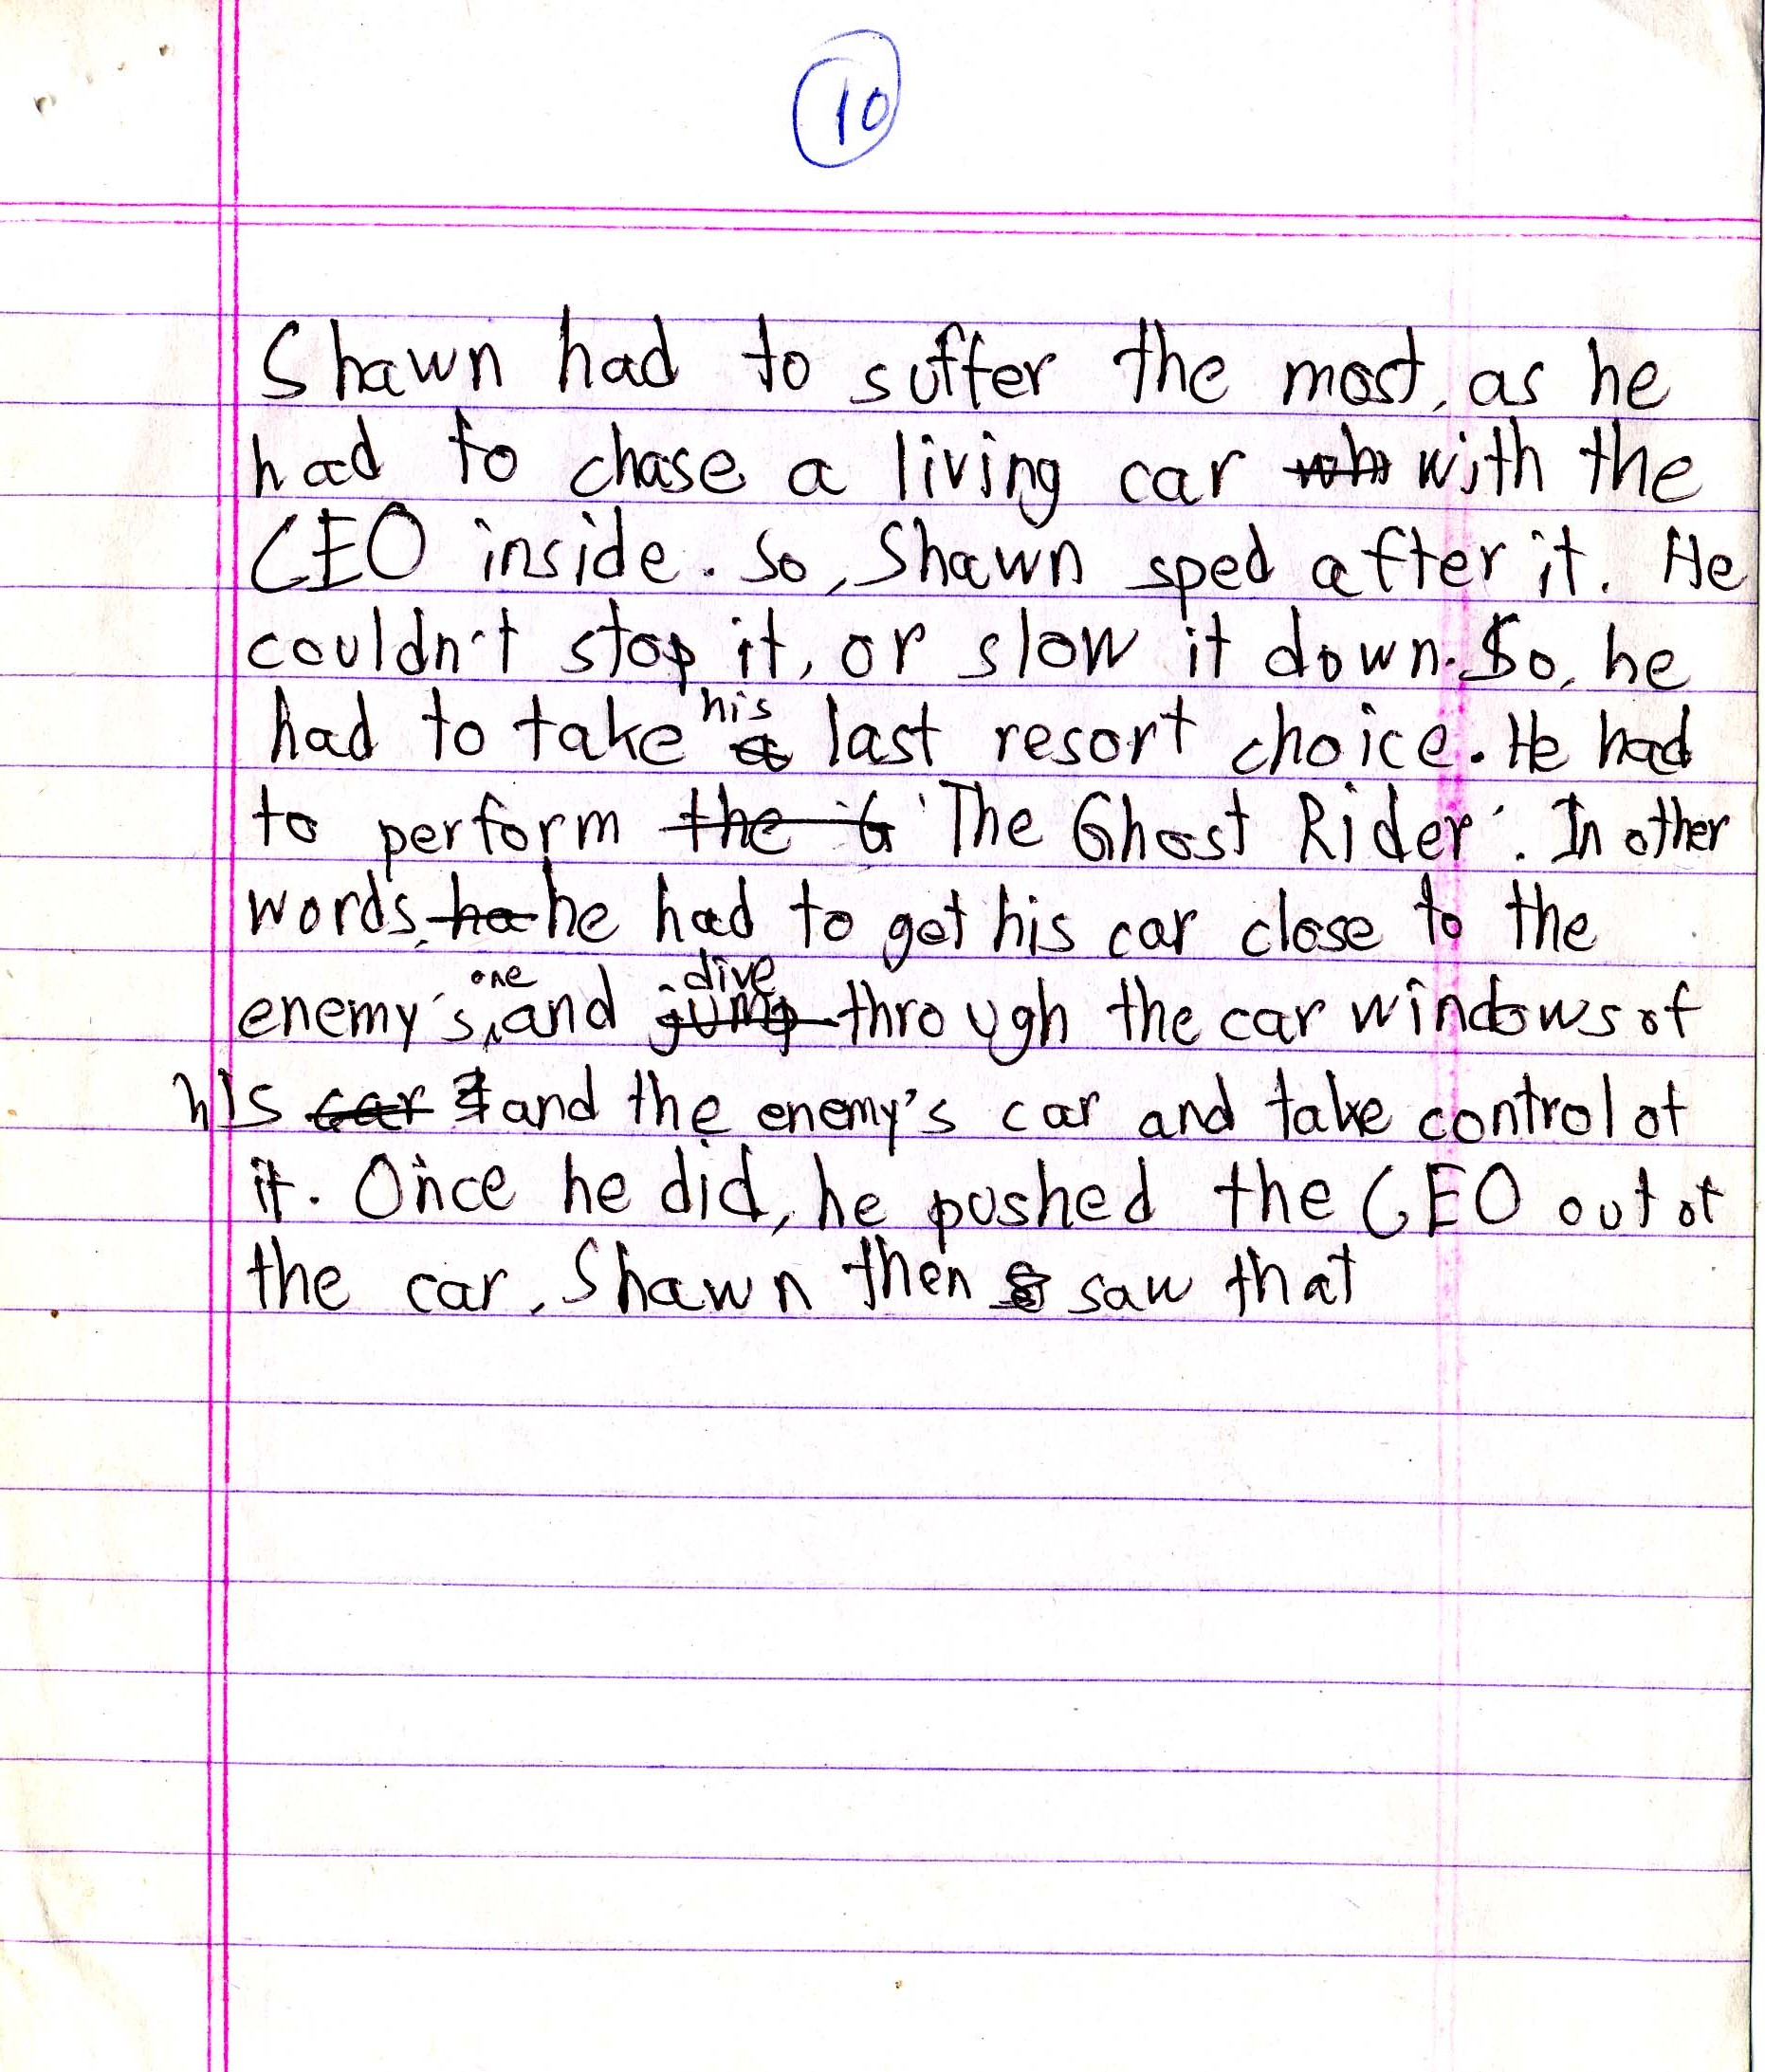 10
Shawn had to suffer the most, as he
had to chase a living car with the
CEO inside. So, Shawn sped after it. He
couldn't stop it, or slow it down. So, he
had to take his last resort choice. He had
to perform 'The Ghost Rider'. In other
words, he had to get his car close to the
enemy's one, and dive through the car windows of
his and the enemy's car and take control of
it. Once he did, he pushed the CEO out of
the car. Shawn then saw that